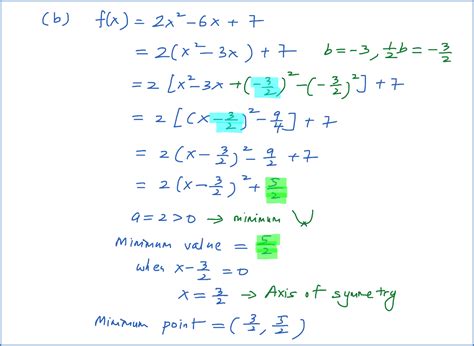 (b) f(x) = 2x² - 6x + 7
= 2(x² - 3x) + 7 b = -3, ½b = -3/2
= 2 [x² - 3x + (-3/2)² - (-3/2)²] + 7
= 2 [(x - 3/2)² - 9/4] + 7
= 2 (x - 3/2)² - 9/2 + 7
= 2 (x - 3/2)² + 5/2
a = 2 > 0 → minimum
Minimum value = 5/2
when x - 3/2 = 0
x = 3/2 → Axis of symmetry
Minimum point = (3/2, 5/2)